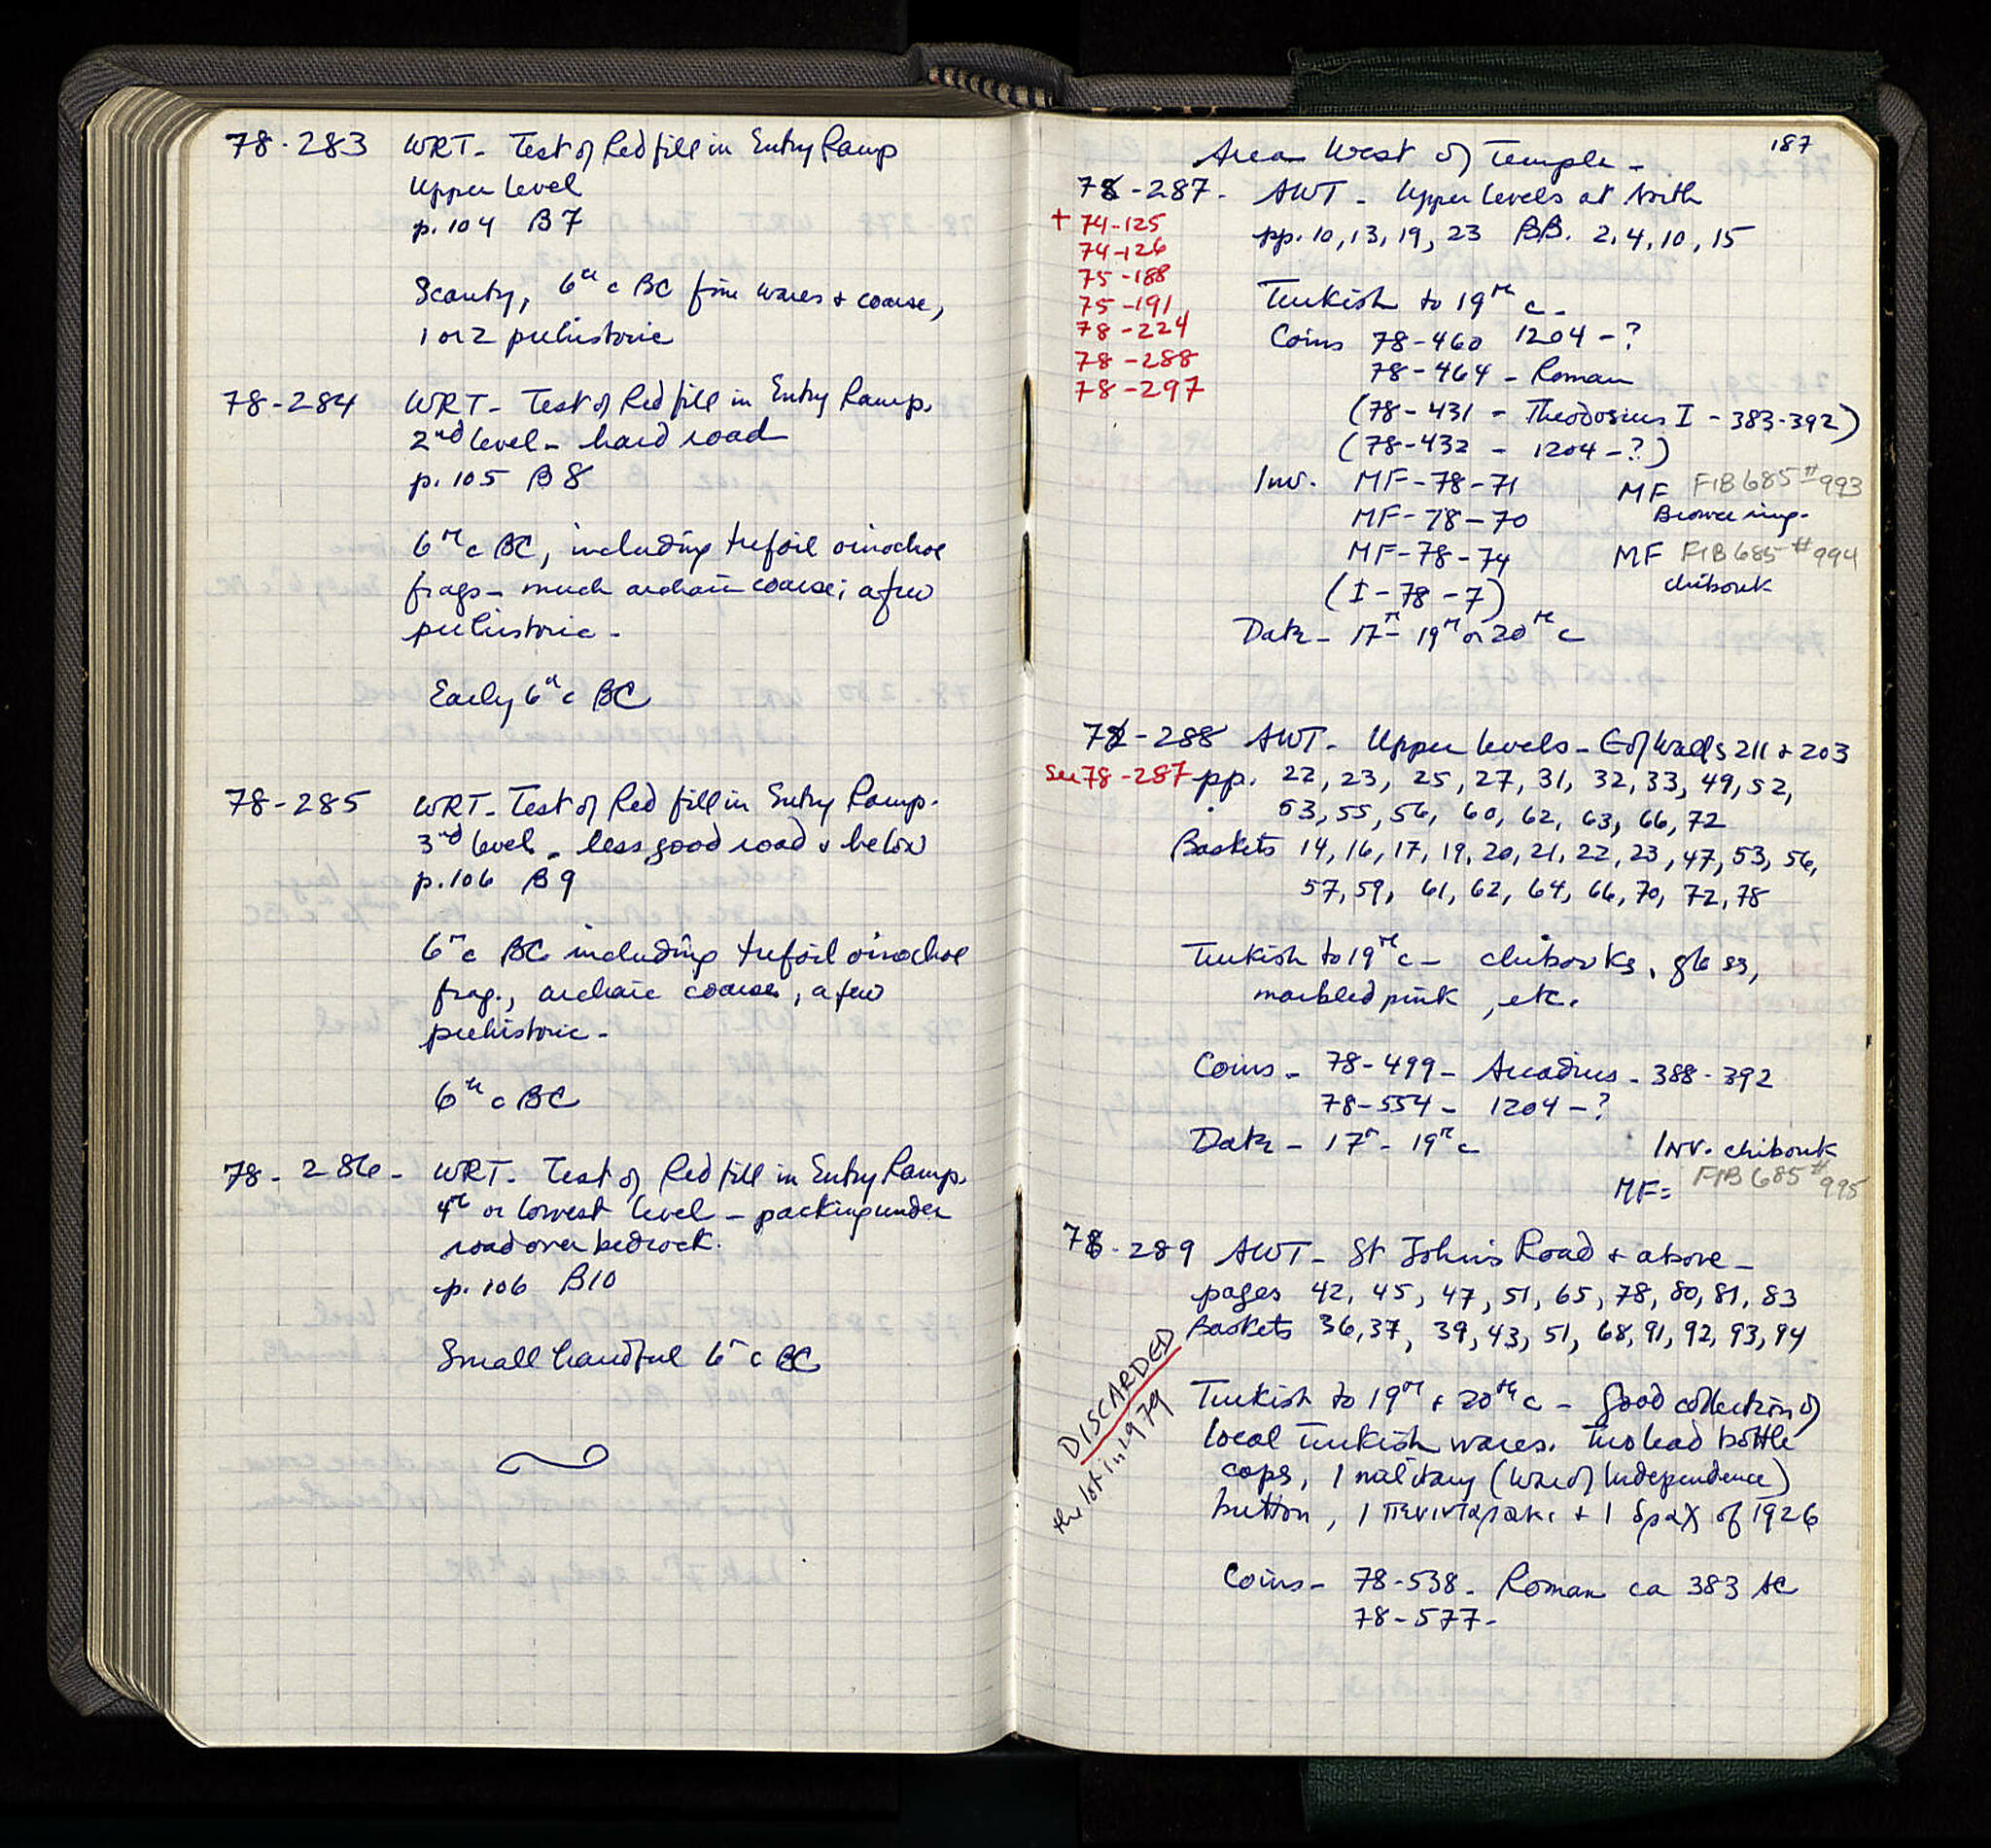 78-283 WRT- Test of Red fill in Entry Ramp
Upper level
p. 104 B 7
Scanty, 6th c BC fine wares + coarse,
1 or 2 prehistoric
78-284 WRT- Test of Red fill in Entry Ramp.
2nd level- hard road
p. 105 B 8
6th c BC, including trefoil oinochoe
frags- much archaic coarse; a few
prehistoric-
Early 6th c BC
78-285 WRT- Test of Red fill in Entry Ramp.
3rd level- less good road & below
p. 106 B 9
6th c BC including trefoil oinochoe
frag., archaic coarse, a few
prehistoric-
6th c BC
78-286- WRT- Test of Red fill in Entry Ramp.
4th or lowest level - packing under
road over bedrock.
p. 106 B10
Small handful 6th c BC
187
Area West of Temple-
78-287- AWT- Upper levels at North
+ 74-125
74-126
75-188
75-191
78-224
78-288
78-297
pp. 10, 13, 19, 23 BB. 2, 4, 10, 15
Turkish to 19th c-
Coins 78-460 1204-?
78-464- Roman
(78-431 - Theodosius I - 383-392)
(78-432 - 1204-?)
Inv. MF-78-71 MF FIB 685 #993
MF-78-70 Bronze ring-
MF-78-74 MF FIB 685 #994
(I-78-7) chibouk
Date- 17th- 19th or 20th c
78-288 AWT- Upper levels- E of Walls 211 + 203
see 78-287 pp. 22, 23, 25, 27, 31, 32, 33, 49, 52,
53, 55, 56, 60, 62, 63, 66, 72
Baskets 14, 16, 17, 19, 20, 21, 22, 23, 47, 53, 56,
57, 59, 61, 62, 64, 66, 70, 72, 78
Turkish to 19th c- chibouks, glass,
marbled pink, etc.
Coins- 78-499- Arcadius- 388-392
78-554- 1204-?
Date- 17th- 19th c
INV. chibouk
MF= FIB 685 #995
78-289 AWT- St John's Road + above-
pages 42, 45, 47, 51, 65, 78, 80, 81, 83
Baskets 36, 37, 39, 43, 51, 68, 91, 92, 93, 94
DISCARDED
the lot in 1979
Turkish to 19th + 20th c- good collection of
local Turkish wares. Two lead bottle
caps, 1 military (War of Independence)
button, 1 πενινταρακι + 1 δραχ of 1926
Coins- 78-538- Roman ca 383 AC
78-577-